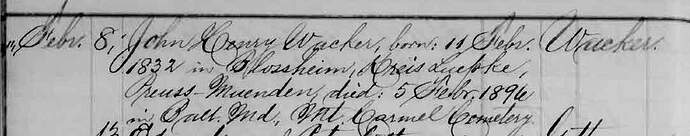 " Febr. 8, John Henry Wacker, born: 11 Febr. Wacker.
1832 in Blossheim, Kreis Luebke,
Preuss-Muenden, died: 5 Febr. 1896
in Balt. Md., Mt. Carmel Cemetery.